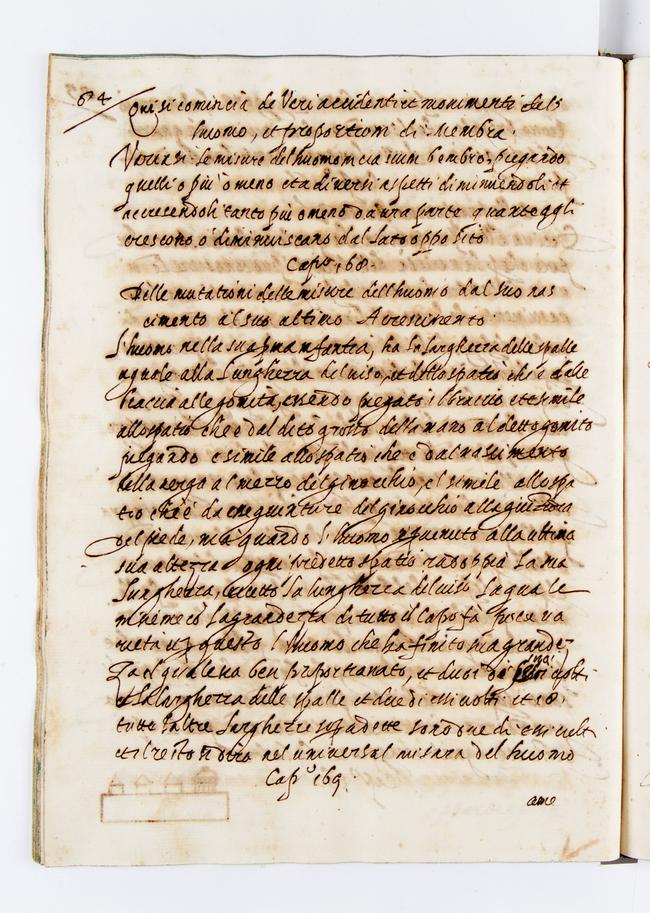 64
Qui si comincia de Veri accidenti et movimenti dell
huomo, et proportioni di Membra.
Variasi le misure del huomo in cia scun membro, piegando
quelli o piu o meno et a diversi aspetti diminuendoli et
accrescendoli tanto piu o meno da una parte quanto egli
crescono o diminuiscano dal lato opposito
Capo 168.
Delle mutationi delle misure dell huomo dal suo nas
cimento al suo ultimo Acrescimento
L'huomo nella sua prima infantia, ha la larghezza delle spalle
uguale alla lunghezza del viso, et dello spatio che è dalle
braccia alle gomita, essendo piegato il braccio et è simile
allo spatio che è dal dito grosso della mano al detto gomito
piegando e simile allo spatio che è dal nascimento
della verga al mezzo del ginocchio, el simile allo spa
tio che è da giunture del ginocchio alla
del piede, ma quando l'huomo è venuto alla ultima
sua altezza ogni predetto spatio radoppia la sua
lunghezza, eccetto la lunghezza del viso, la quale
insieme con la grandezza di tutto il capo fa poca va
rieta per questo l'huomo che ha finito sua grandez
za el quale sia ben proportionato, et dieci di suoi volti
et la larghezza delle spalle et due di essi volti et cosi
tutte l'altre larghezze sopradette sono due di essi volti
et il resto si dira nel universal misura del huomo
Capo 169.
ame